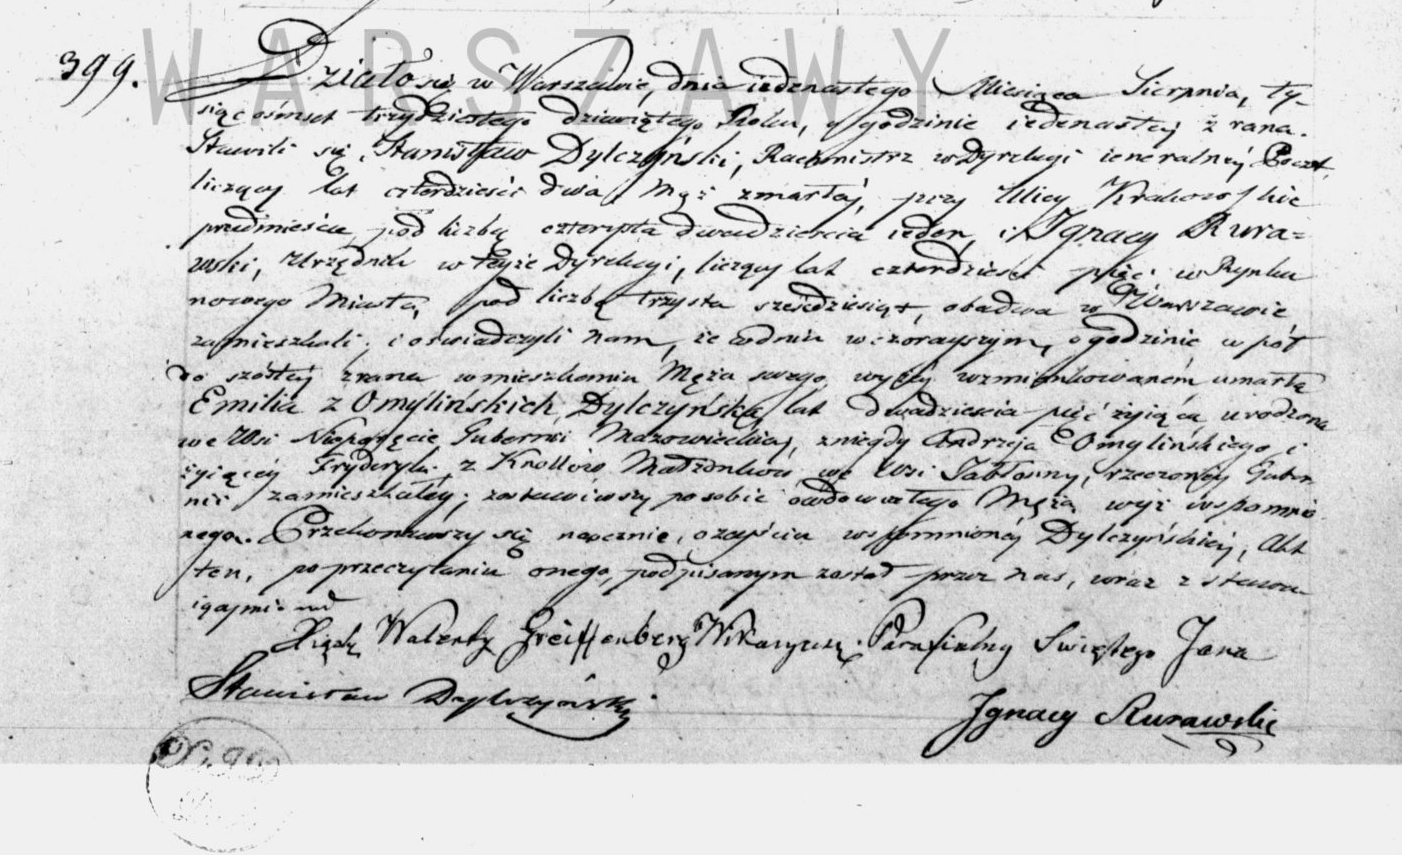 WARSZAWY
399.
Działo się w Warszawie, dnia iedenastego Miesiąca Sierpnia, ty-
siąc ośmset trzydziestego dziewiętego Roku, o godzinie iedenastej z rana.
Stawili się, Stanisław Dylczyński, Rachmistrz w Dyrekcyi ieneralnej Poczt,
liczący lat czterdzieści dwa Mąż zmarłej, przy Ulicy Krakowskie
przedmieście pod liczbą czterysta dwadzieścia ieden, i Ignacy Rura=
wski, Urzędnik w teyże Dyrekcyi, liczący lat czterdzieści pięć w Rynku
nowego Miasta, pod liczbą trzysta sześćdziesiąt, obadwa w Warszawie
zamieszkali; i oświadczyli nam, że w dniu wczorayszym, o godzinie w pół
do szóstej z rana w mieszkaniu Męża swego wyżej wzmiankowanem umarła
Emilia z Omylińskich Dylczyńska, lat dwadzieścia pięć żyiąca urodzona
we Wsi Nieporęcie Gubernii Mazowieckiej, z niegdy Andrzeja Omylińskiego i
żyiącej Fryderyki z Knollów Małżonków we Wsi Jabłonny, rzeczonej Guber
nii zamieszkałey; zostawiwszy po sobie owdowiałego Męża wyż wspomnio
nego. Przekonawszy się naocznie, o zejściu wspomnionej Dylczyńskiej, Akt
ten, po przeczytaniu onego, podpisanym został przez nas, wraz z stawa
iącymi
Xiądz Walenty Greiffenberg Wikaryusz Parafialny Świętego Jana
Stanisław Dylczyński
Ignacy Rurawski